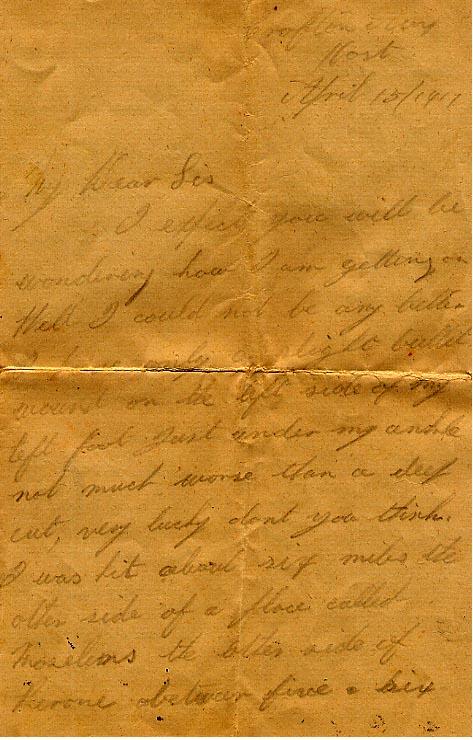 Host
April 15/1917
My Dear Sis
I expect you will be
wondering how I am getting on
Well I could not be any better
I have only a slight bullet
wound on the left side of my
left foot just under my ankle
not much worse than a deep
cut, very lucky dont you think.
I was hit about six miles the
other side of a place called
the other side of
Perone between five &